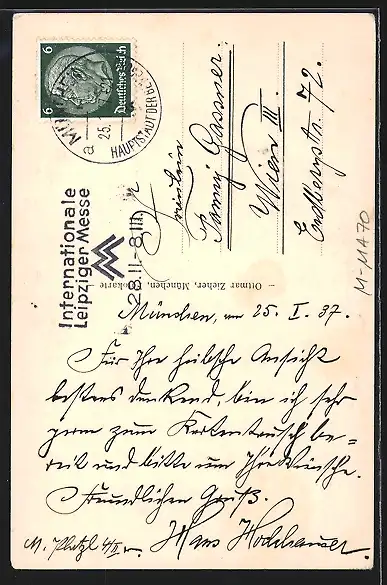 6
6
Deutsches Reich
MÜNCHEN
25.
a
HAUPTSTADT DER BEWEGUNG
Internationale
Leipziger Messe
28.II.-8.III.
Fräulein
Fanny Gassner
Wien III.
Erdbergstr. 72.
– Ottmar Zieher, München,
M-MA70
München, am 25. I. 37.
Für Ihre hübsche Ansicht
bestens dankend, bin ich sehr
gern zum Kartentausch be=
reit und bitte um Ihre Wünsche.
Freundlichen Gruß.
Hans
M. Platzl 4/II r.